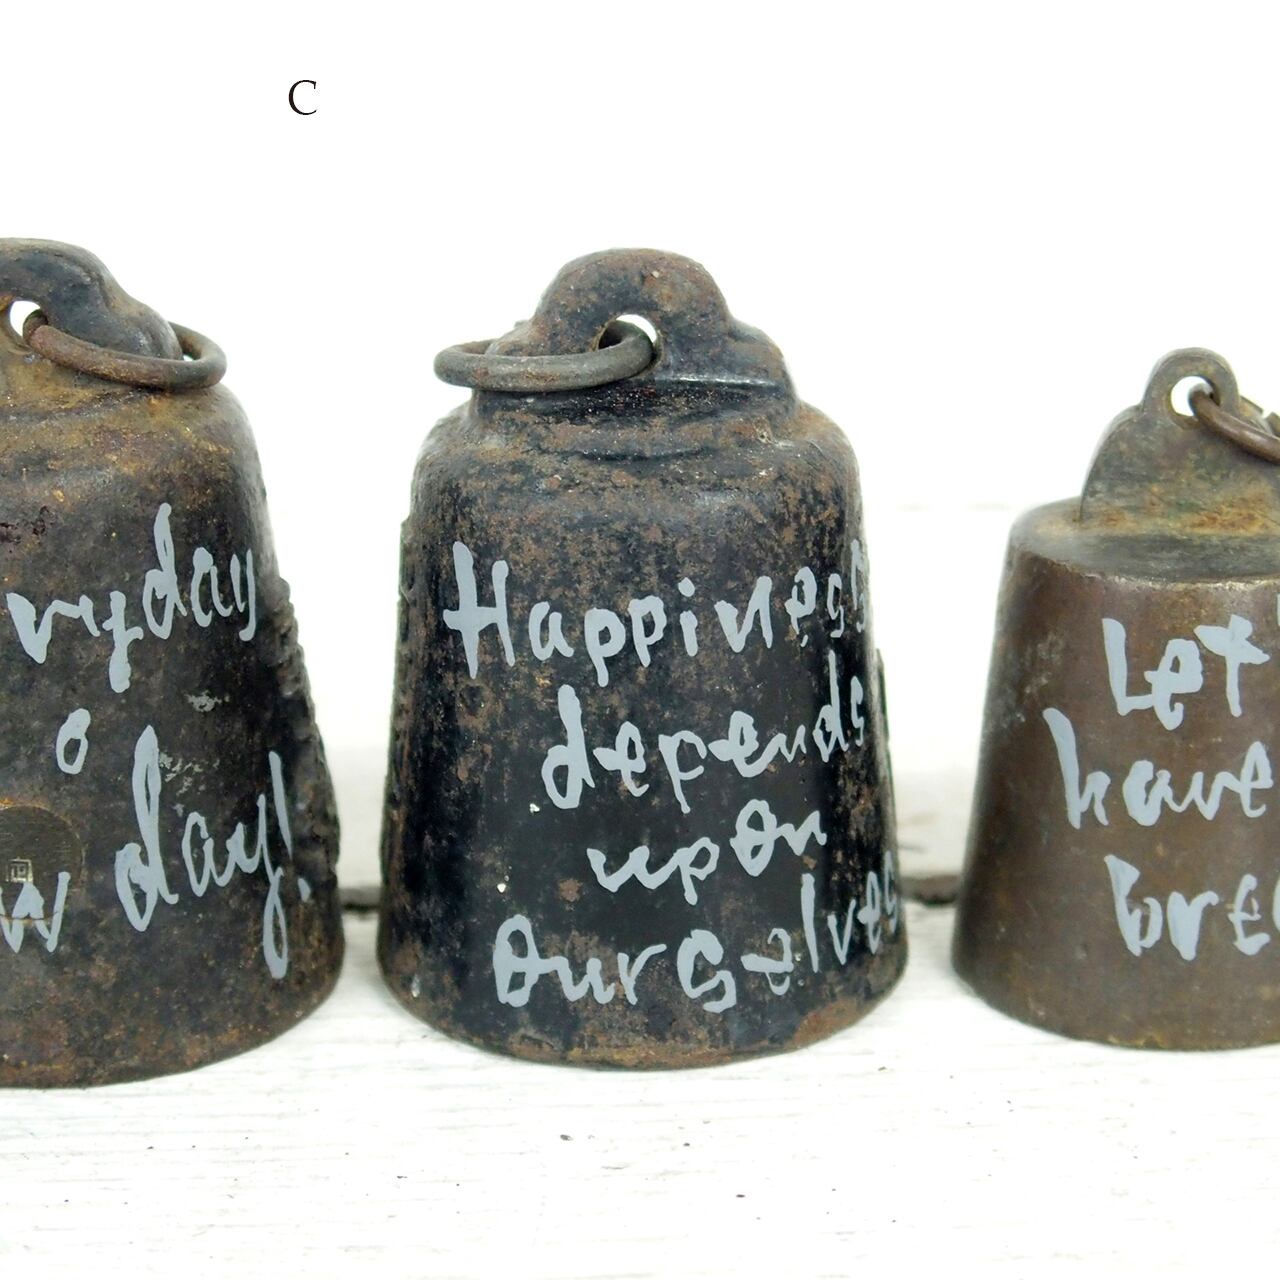 C
ryday
o
w day!
Happiness
depends
upon
ourselves
Let
have